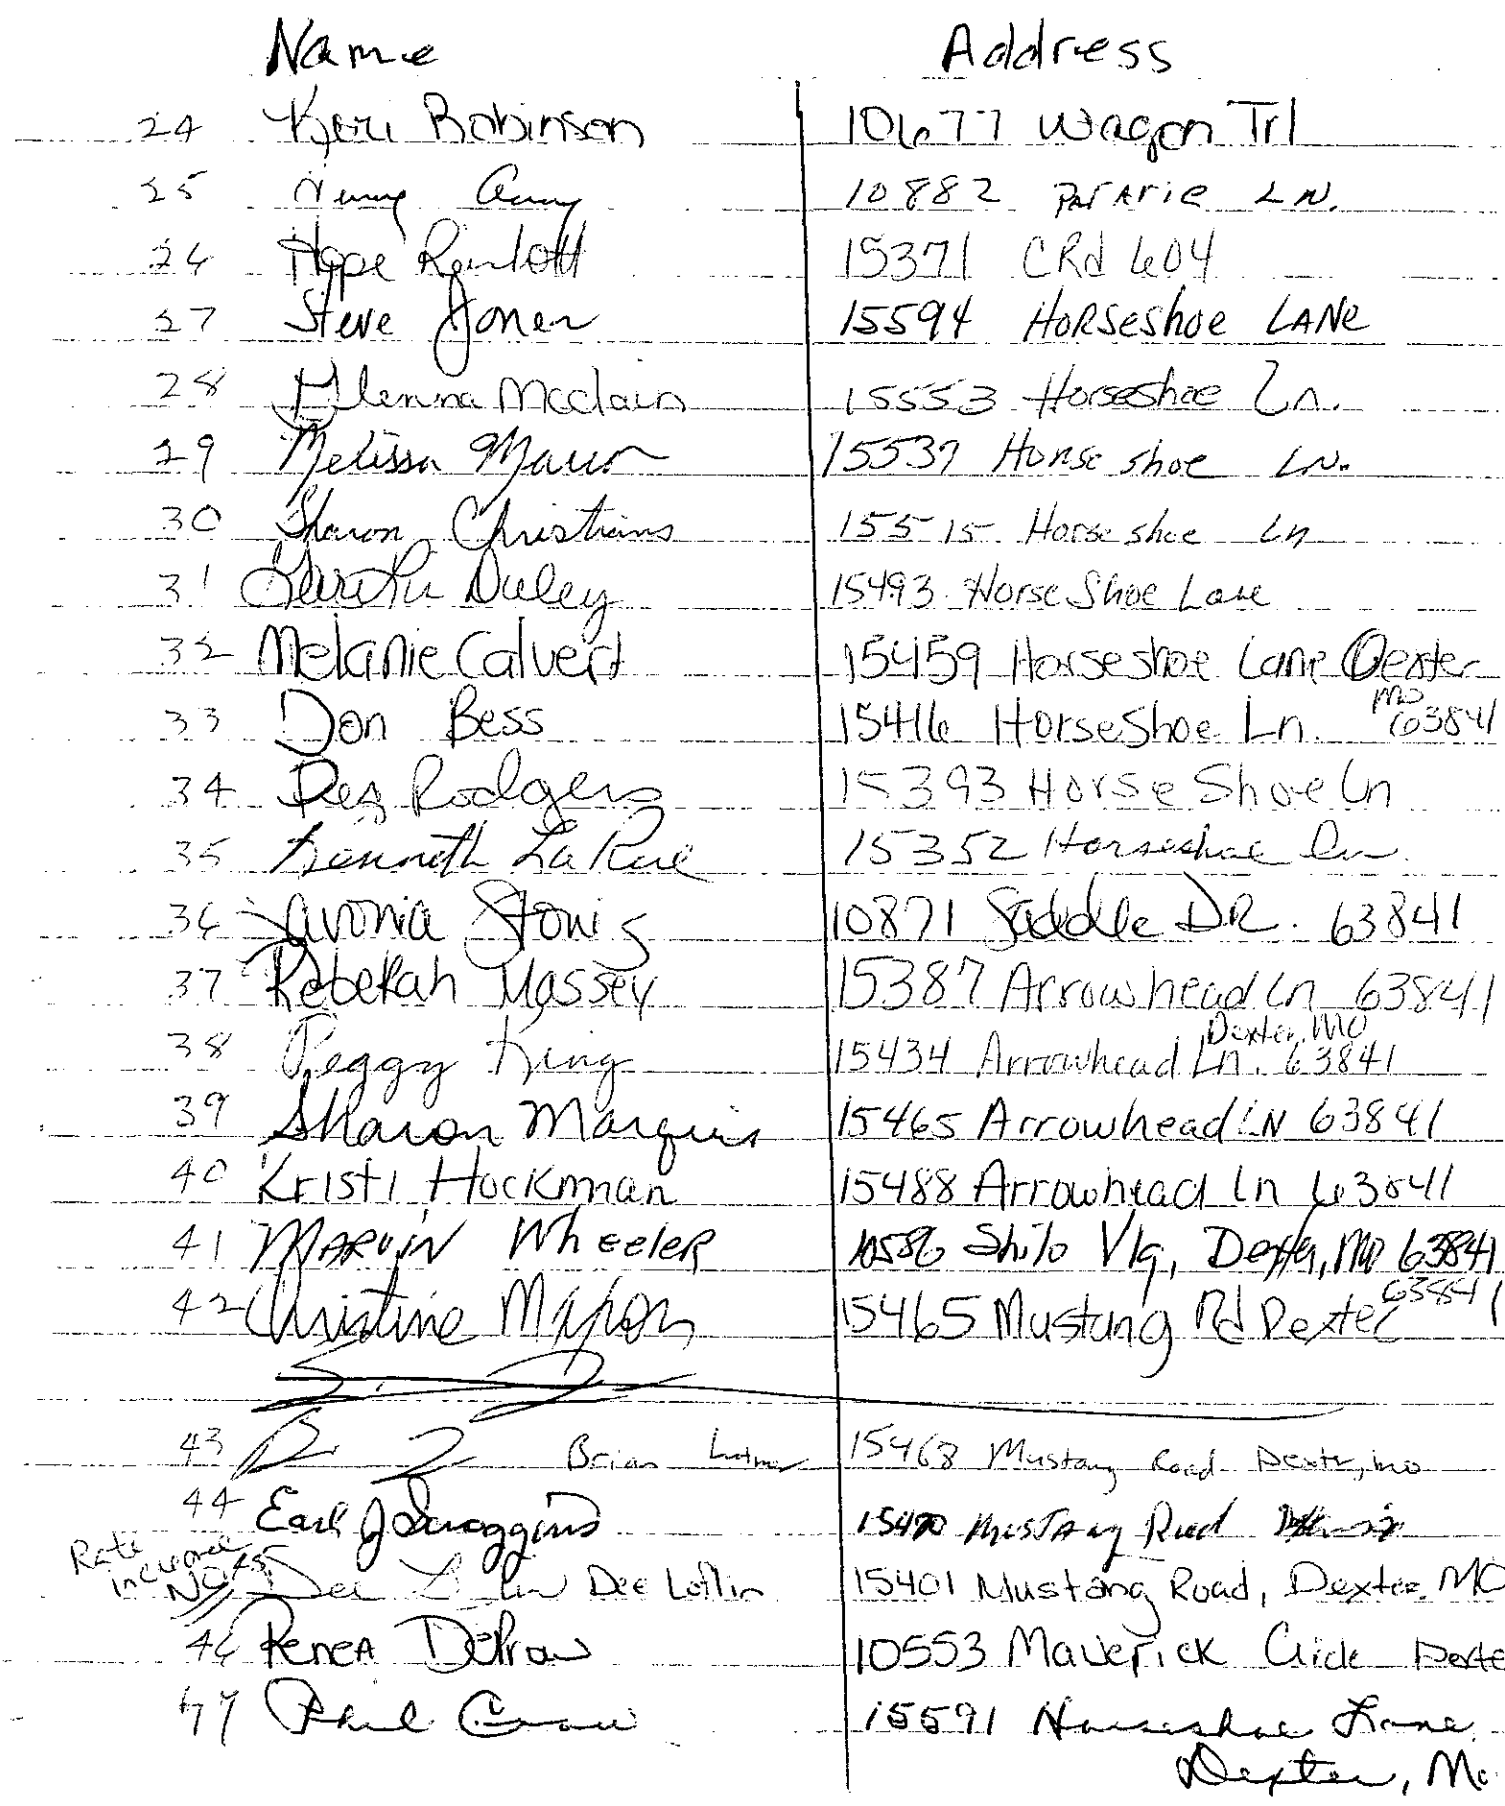 Name Address
24 Keri Robinson 10677 Wagon Trl
25 10882 LN.
26 Hope 15371 CRd 604
27 Steve Jones 15594 HORSeshoe LANe
28 Mcclain 15553 Horseshoe Ln.
29 Melissa 15537 Horse shoe LN.
30 Sharon Christians 15515 Horse shoe Ln
31 Duley 15493 Horse Shoe Lane
32 Melanie Calvert 15459 Horseshoe Lane Dexter
MO
33 Don Bess 15416 Horseshoe Ln. 63841
34 Rodgers 15393 Horse Shoe Ln
35 Kenneth LaRue 15352 Horseshoe Ln.
36 Lavonia 10871 Saddle DR. 63841
37 Rebekah Massey 15387 Arrowhead Ln 63841
Dexter, MO
38 Peggy King 15434 Arrowhead Ln. 63841
39 Sharon Marquis 15465 Arrowhead LN 63841
40 Kristi Hockman 15488 Arrowhead Ln 63841
41 MARVIN WheeleR 10586 Shilo Vlg, Dexter, MO 63841
63841
42 Christine 15465 Mustang Rd Dexter
43 Brian 15468 Mustang Road Dexter, mo
44 Earl J Scroggins Mustang Road
Rate
increase
NO 45 Dee Loflin 15401 Mustang Road, Dexter, MO
46 ReneA DeProw 10553 Maverick Circle Dexte
47 Phil Crow 15591 Horseshoe Lane
Dexter, Mo.